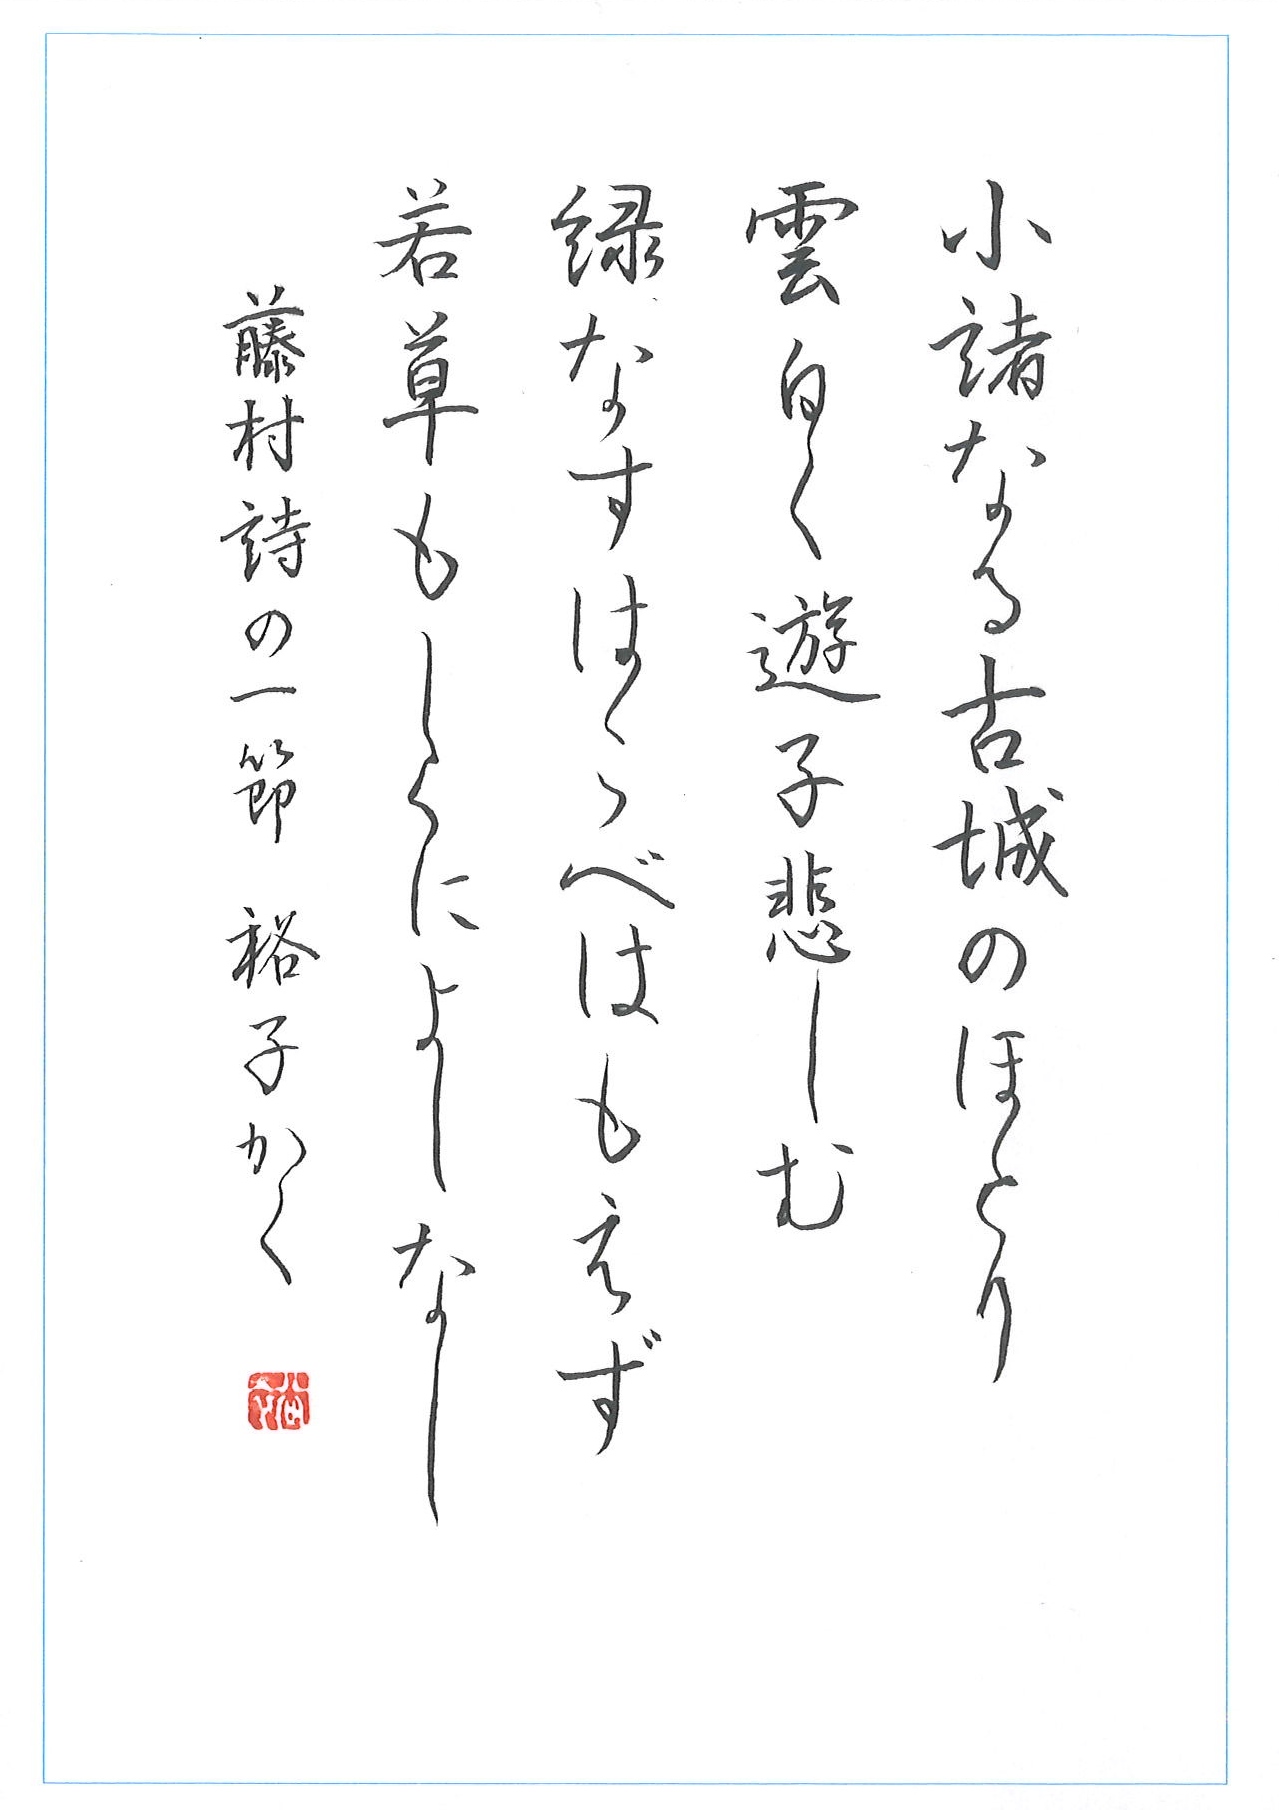 小諸なる古城のほとり
雲白く遊子悲しむ
緑なすはこべはもえず
若草もしくによしなし
藤村詩の一節 裕子かく